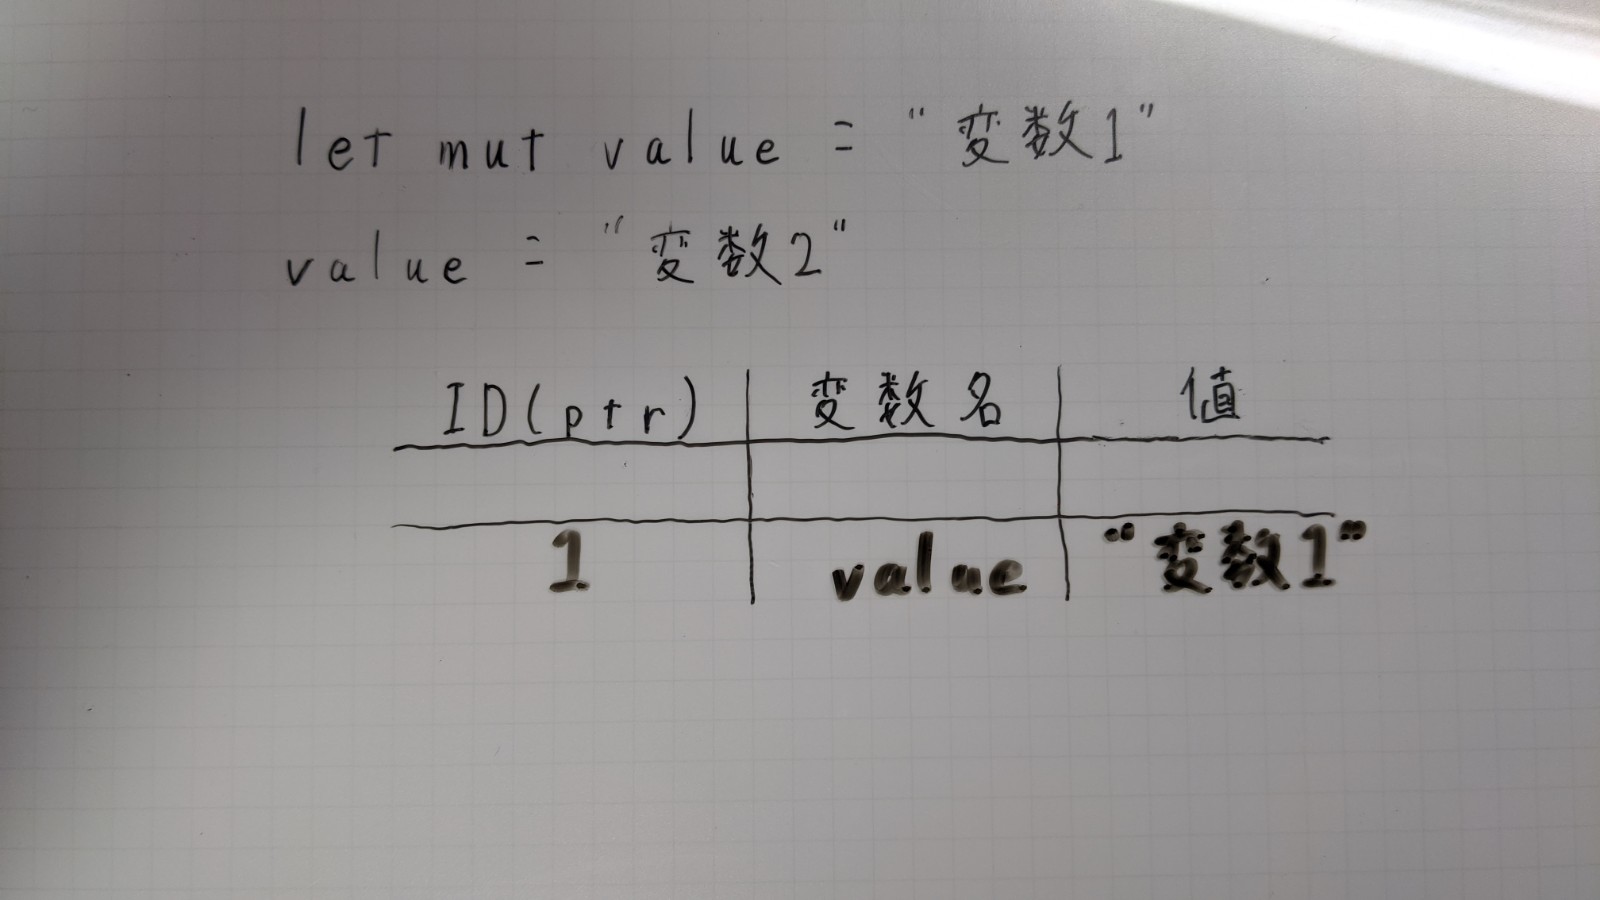 let mut value = "変数1"
value = "変数2"
ID(ptr) 変数名 値
1 value "変数1"